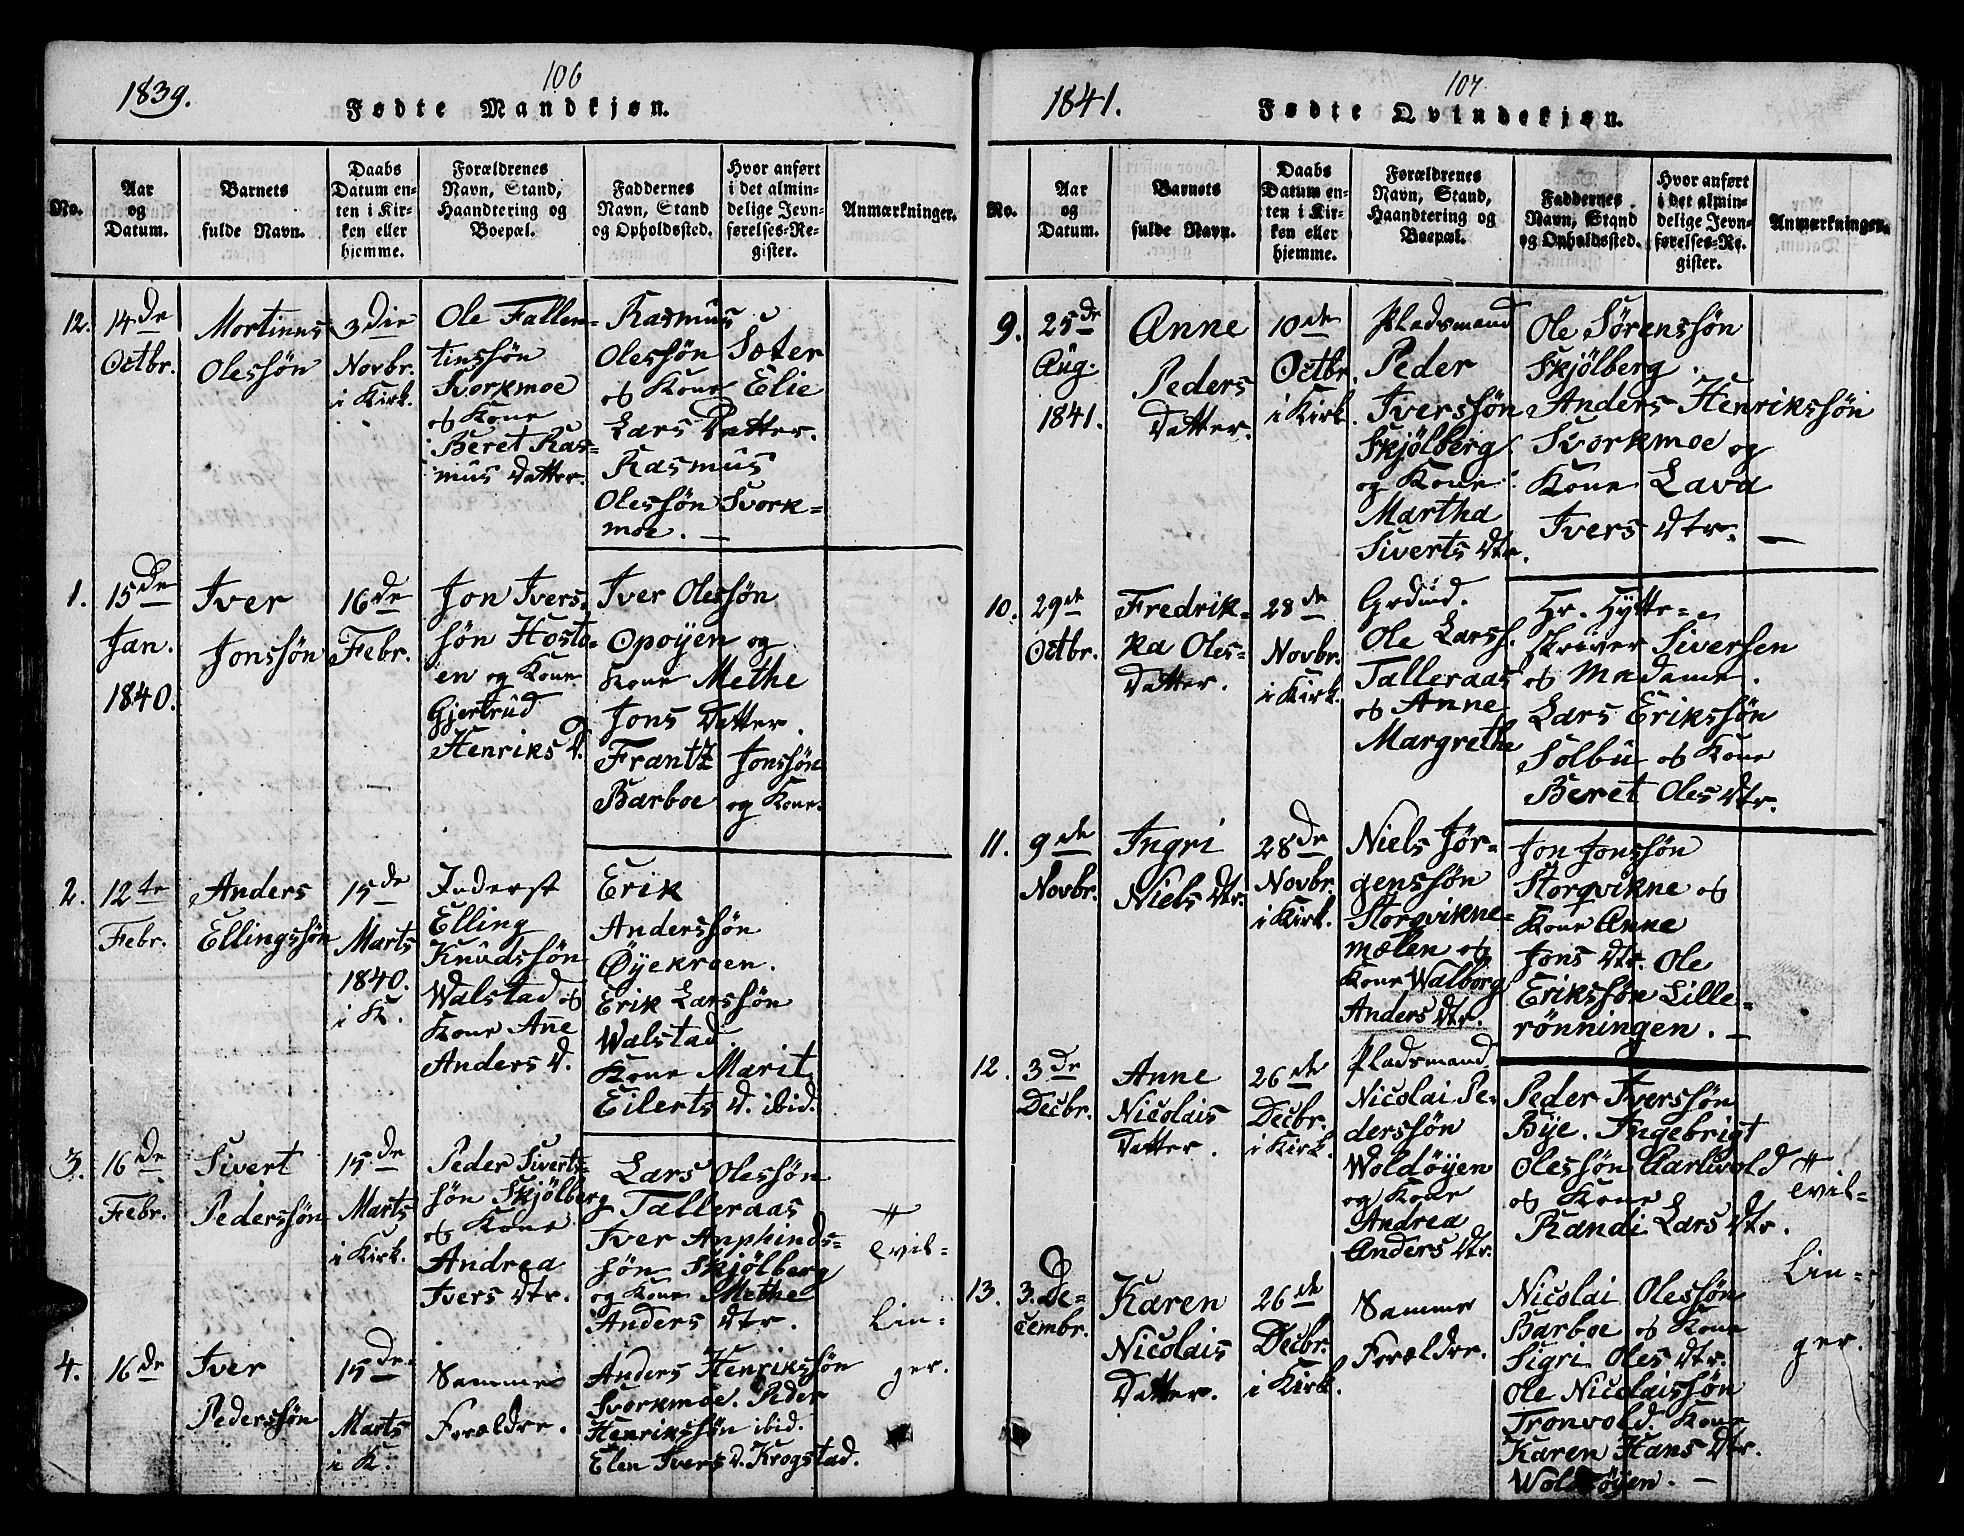 1839.
106
Fødte Mandkjøn.
No.
Aar
og
Datum.
Barnets
fulde Navn.
Daabs
Datum en-
ten i Kir-
ken eller
hjemme.
Forældrenes
Navn, Stand,
Haandtering og
Boepæl.
Faddernes
Navn, Stand
og Opholdssted.
Hvor anført
i det almin-
delige Jevn-
førelses-Re-
gister.
Anmærkninger.
12.
14de
Octbr.
Mortinus
Olessön
3die
Novbr.
i Kirk.
Ole Fallen-
tinssön
Svorkmoe
og Kone
Beret Ras-
mus Datter.
Rasmus
Olessön Soter
og Kone Elie
Lars Datter.
Rasmus
Olessön Svork-
moe. —
1.
15de
Jan.
1840.
Iver
Jonssön
16de
Febr.
Jon Ivers-
sön Hosto-
en og Kone
Gjertrud
Henriks D.
Iver Olessön
Opoyen og
Kone Methe
Jons Datter.
Frantz Jonssön
Barboe og Kone.
2.
12te
Febr.
Anders
Ellingssön
15de
Marts
1840.
i K.
Inderst
Elling
Knudssön
Walstad og
Kone Ane
Anders D.
Erik
Anderssön
Öyekroen.
Erik Larssön
Walstad.
Kone Marit
Eilerts D. ibid.
3.
16de
Febr.
Sivert
Pederssön
15de
Marts
i Kirk.
Peder Siverts-
sön Skjölberg
og Kone
Andrea
Ivers Dtr.
Lars Olessön
Talleraas
Iver Anphinds-
sön Skjölberg
og Kone Methe
Anders Dtr.
#
Tvil-
lin-
ger.
4.
16de
Iver
Pederssön
15de
Marts
i K.
Samme
Forældre.
Anders Henrikssön
Svorkmoe. Peder
Henrikssön ibid.
Elen Ivers D. Krogstad.
1841.
107
Fødte Qvindekjøn.
No.
Aar
og
Datum.
Barnets
fulde Navn.
Daabs
Datum en-
ten i Kir-
ken eller
hjemme.
Forældrenes
Navn, Stand,
Haandtering og
Boepæl.
Faddernes
Navn, Stand
og Opholdssted.
Hvor anført
i det almin-
delige Jevn-
førelses-Re-
gister.
Anmærkninger.
9.
25de
Aug.
1841.
Anne
Peders
Datter.
10de
Octbr.
i Kirk.
Pladsmand
Peder
Iverssön
Skjölberg
og Kone
Martha
Siverts Dtr.
Ole Sörenssön
Skjölberg.
Anders Henrikssön
Svorkmoe og
Kone Lava
Ivers Dtr. —
10.
29de
Octbr.
Fredrik-
ka Oles-
Datter.
28de
Novbr.
i Kirk.
Grdmd.
Ole Larss.
Talleraas
og Anne
Margrethe
Hr. Hytte-
skriver Siversen
og Madame.
Lars Erikssön
Solbu og Kone
Beret Oles Dtr.
11.
9de
Novbr.
Ingri
Niels Dtr.
28de
Novbr.
i Kirk.
Niels Jör-
genssön
Storqvikne-
mælen og
Kone Walborg
Anders Dtr.
Jon Jonssön
Storqvikne og
Kone Anne
Jons Dtr. Ole
Erikssön Lille-
rönningen. —
12.
3de
Decbr.
Anne
Nicolais
Datter.
26de
Decbr.
i Kirk.
Pladsmand
Nicolai Pe-
derssön
Woldöyen
og Kone
Andrea
Anders Dtr.
Peder Iverssön
Bye. Ingebrigt
Olessön Aarlivold
og Kone
Randi Lars Dtr.
#
Tvil-
Lin-
ger.
13.
3. De-
cembr.
Karen
Nicolais
Datter.
26de
Decbr.
i Kirk.
Samme
Forældre.
Nicolai Olessön
Barboe og Kone
Sigri Oles Dtr.
Ole Nicolaissön
Tronvold. Kone
Karen Hans Dtr.
Woldöyen. —